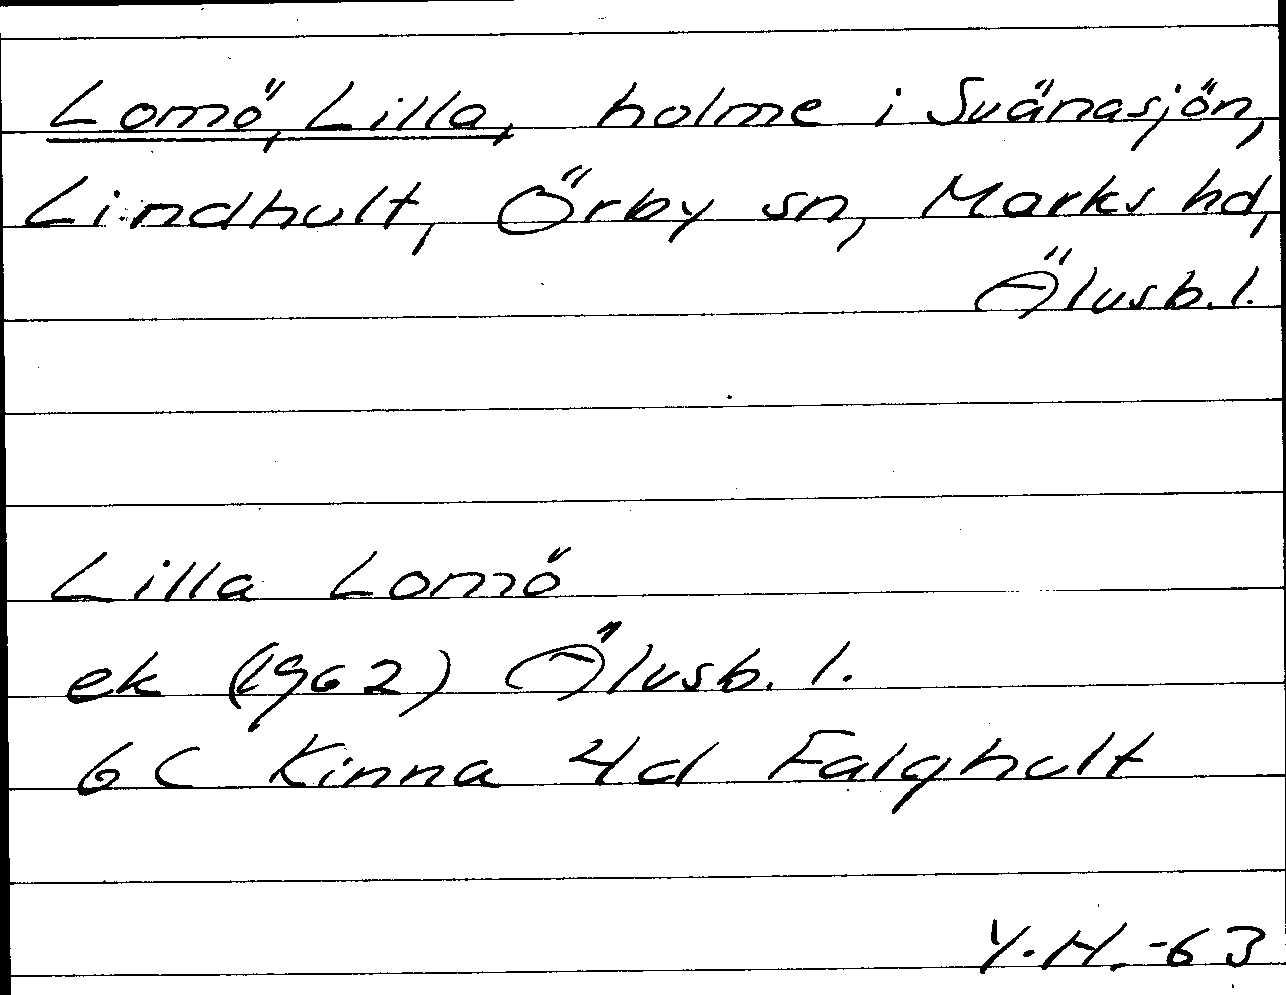 Lomö, Lilla, holme i Svänasjön,
Lindhult, Örby sn, Marks hd,
Älvsb. l.
Lilla Lomö
ek (1962) Älvsb. l.
6C Kinna 4d Falghult
Y.H. -63